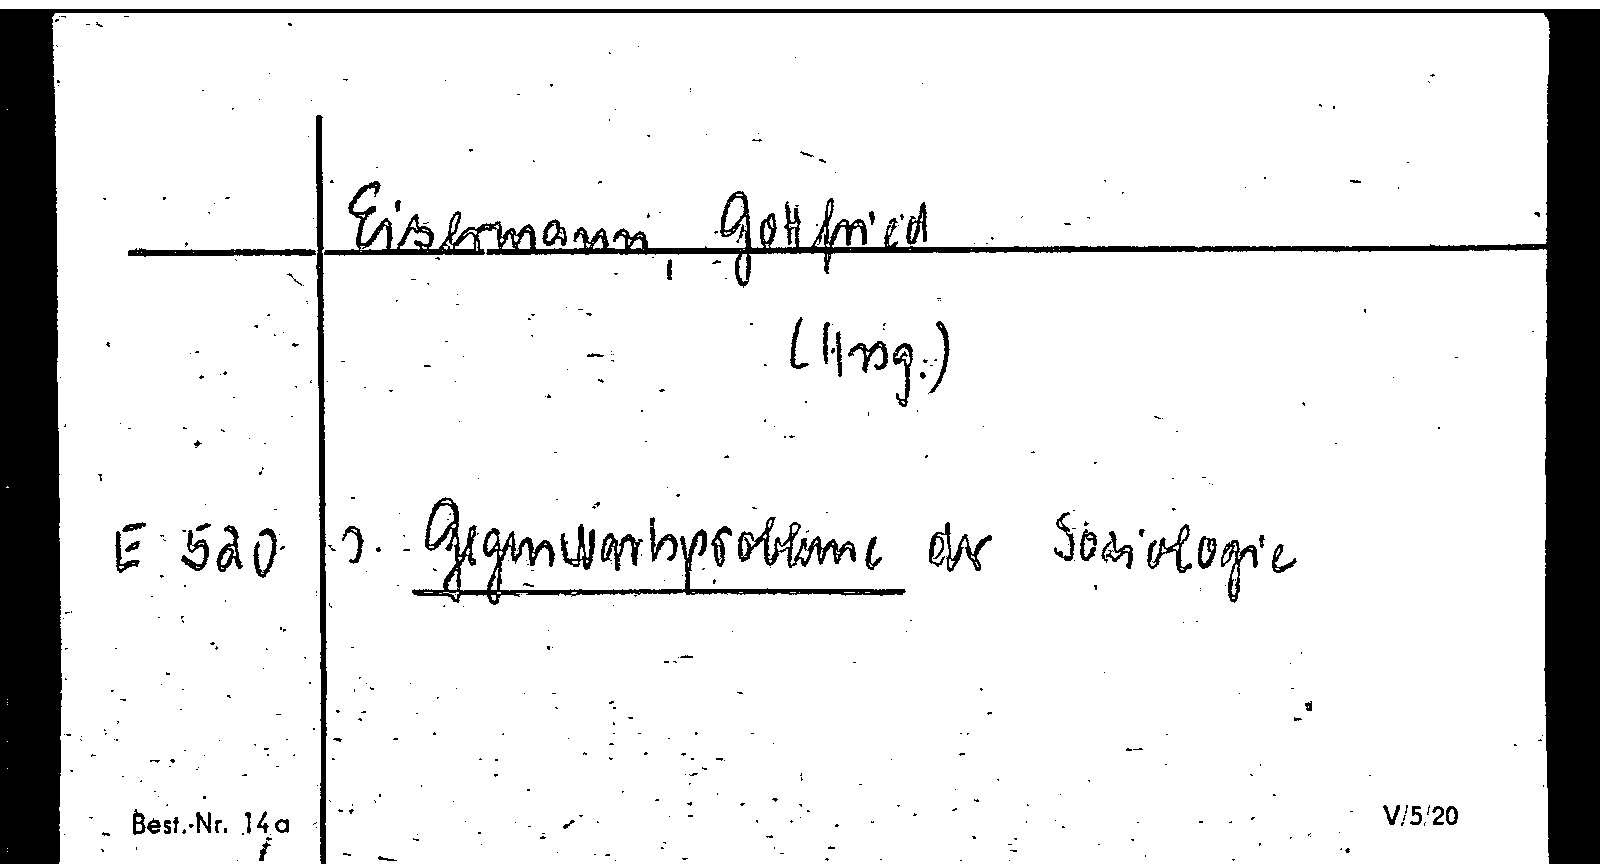 Eisermann, Gottfried
(Hrsg.)
E 520 s. Gegenwartsprobleme der Soziologie
Best.-Nr. 14a V/5/20